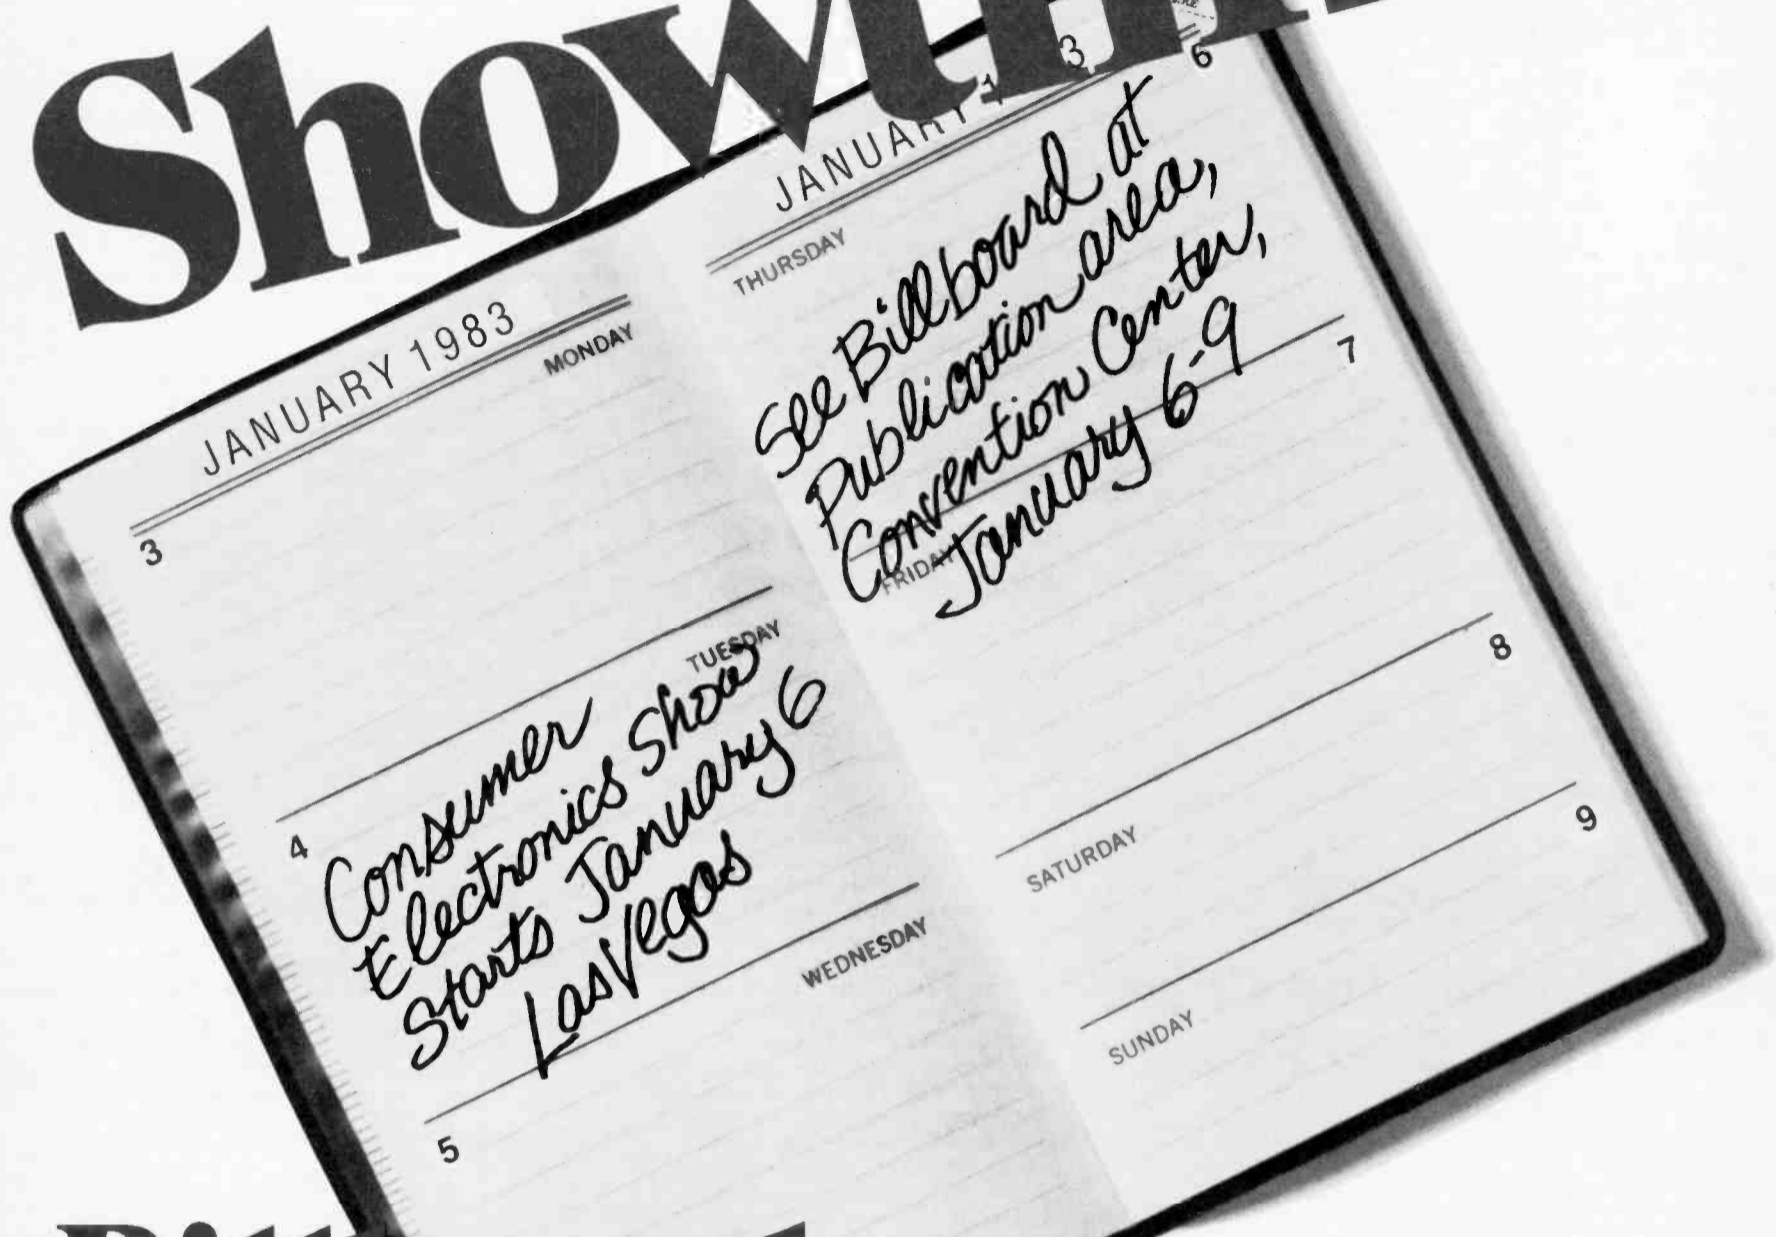 JANUARY 1983
MONDAY
3
TUESDAY
4
Consumer
Electronics Show
Starts January 6
Las Vegas
WEDNESDAY
5
JANUARY
3
6
THURSDAY
See Billboard at
Publication area,
Convention Center,
January 6-9
7
FRIDAY
8
SATURDAY
9
SUNDAY